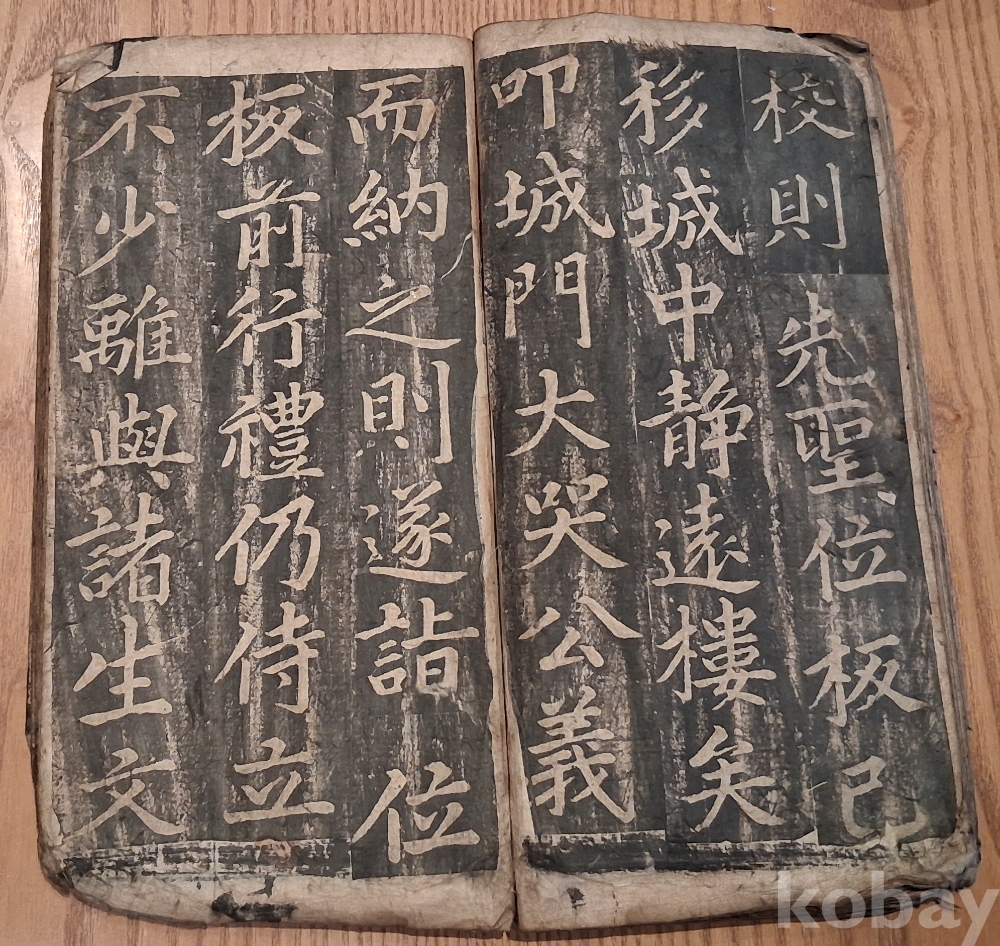 校則先聖位板已
移城中静遠樓矣
叩城門大哭公義
而納之則遂詣位
板前行禮仍侍立
不少離與諸生文
kobay